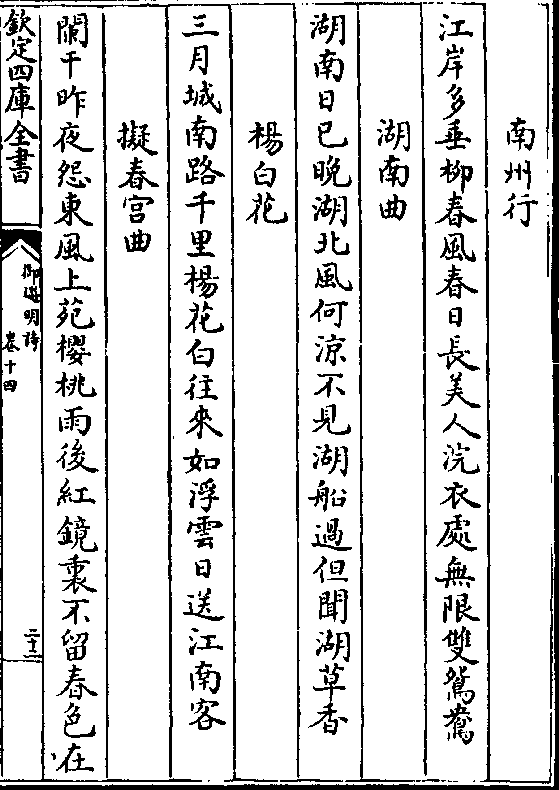 南州行
江岸多垂柳春風春日長美人浣衣處無限雙鴛鴦
湖南曲
湖南日已晚湖北風何涼不見湖船過但聞湖草香
楊白花
三月城南路千里楊花白往來如浮雲日送江南客
擬春宫曲
闌干昨夜怨東風上苑櫻桃雨後紅鏡裏不留春色在
欽定四庫全書
御選明詩
卷十四
二十二